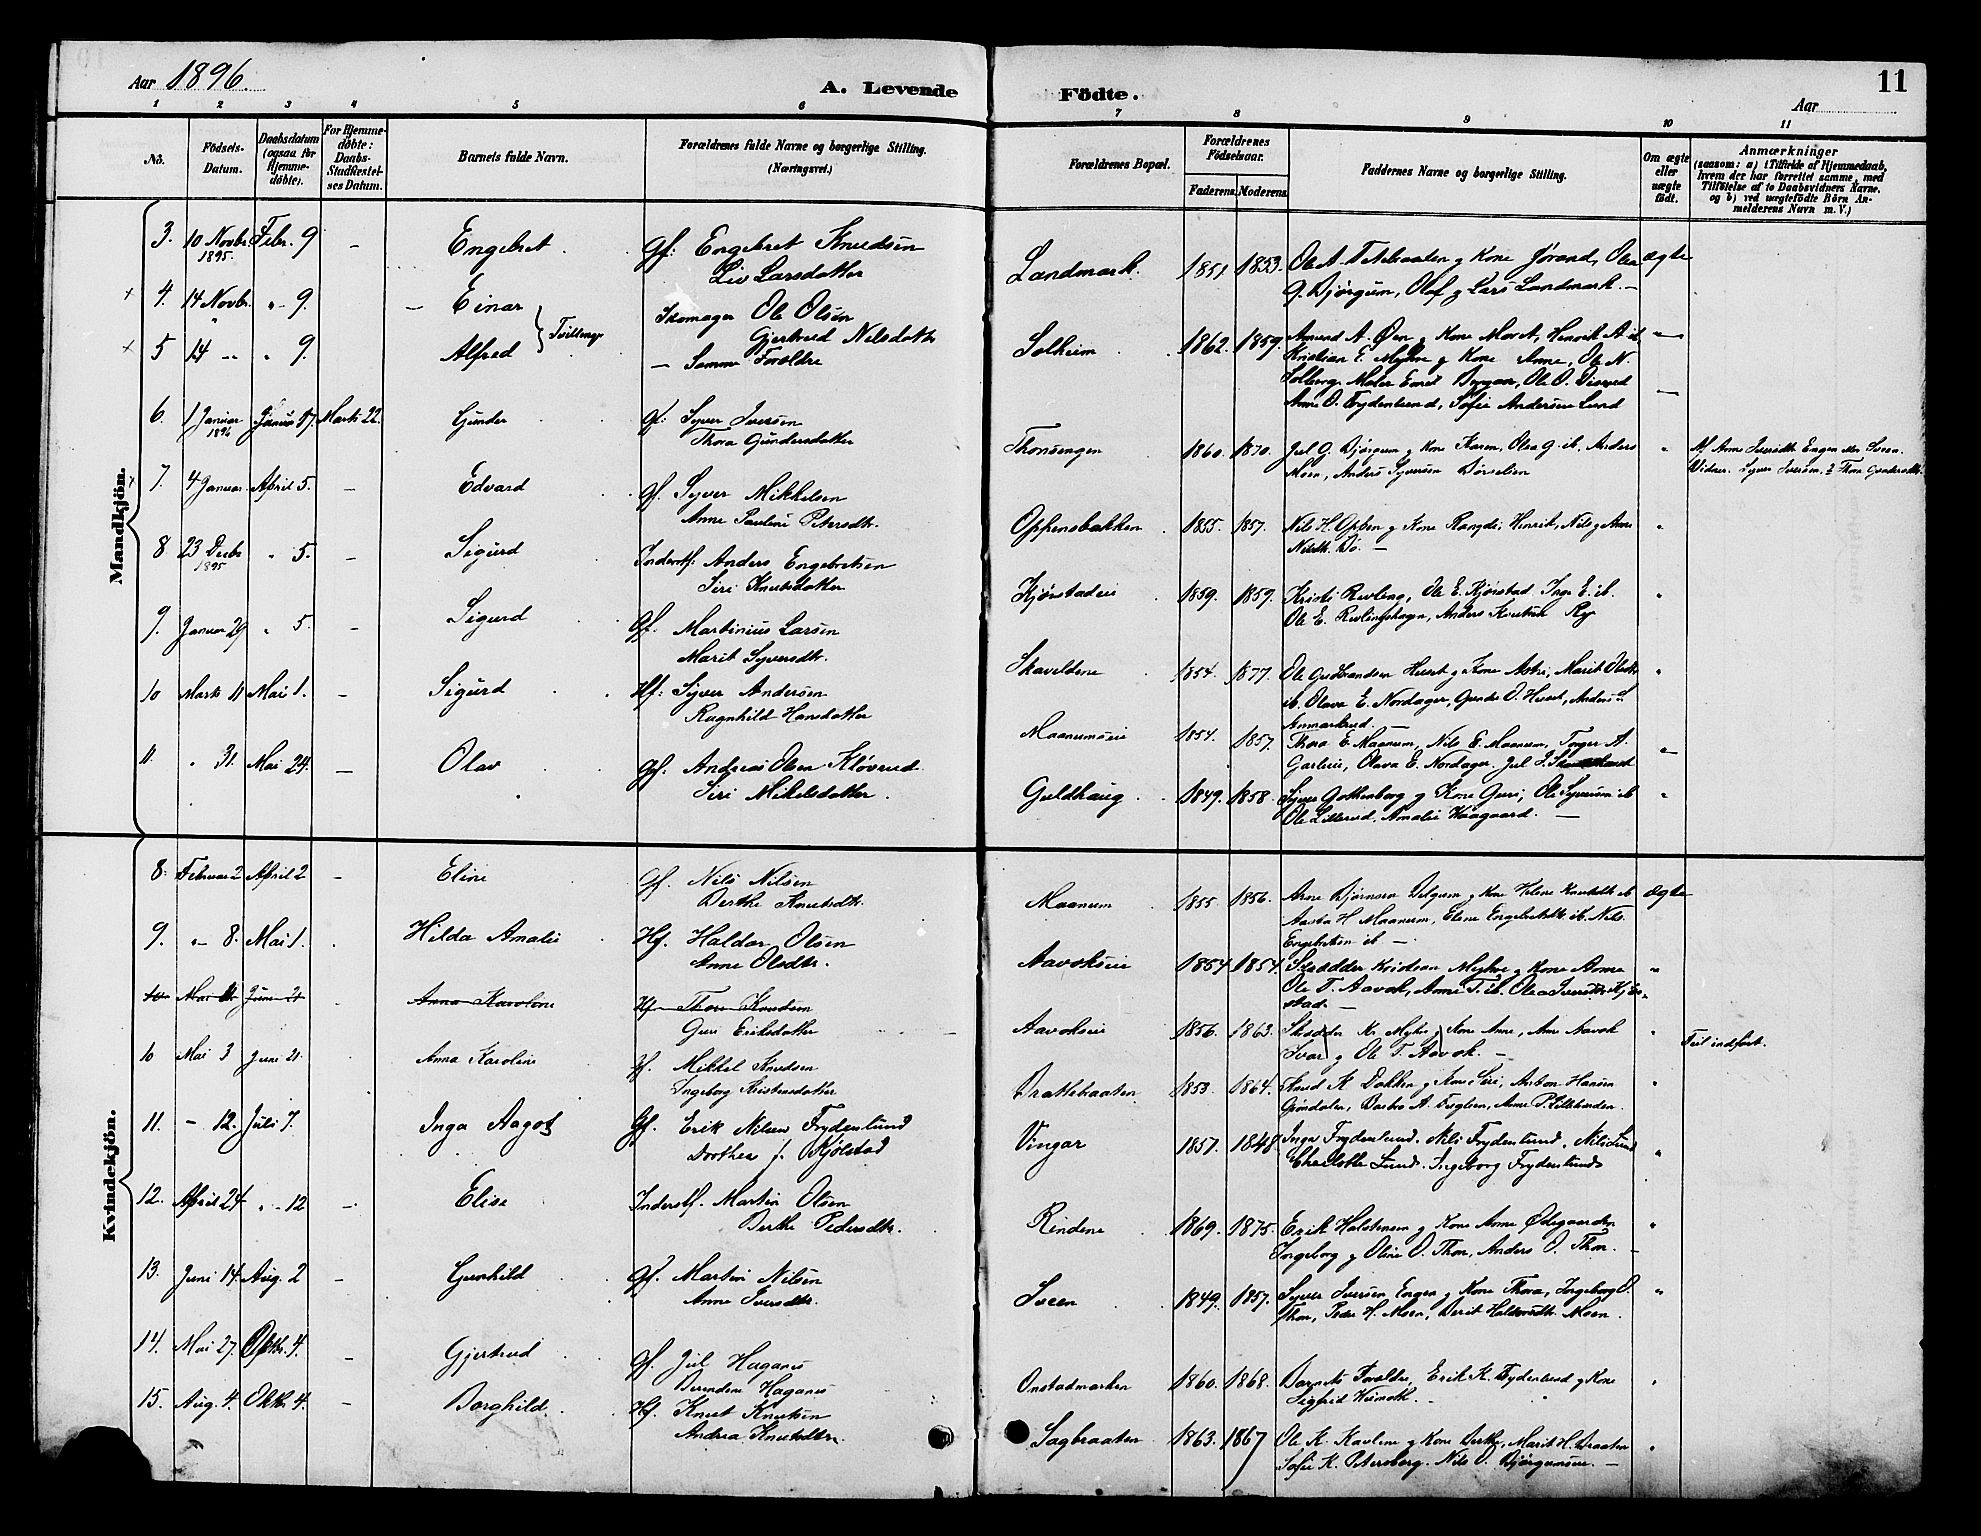 Aar 1896.
A. Levende Födte.
11
Aar
1 2 3 4 5 6 7 8 9 10 11
No.
Födsels-Datum.
Daabsdatum (ogsaa for Hjemme-döbte).
For Hjemme-döbte: Daabs-Stadfæstel-ses Datum.
Barnets fulde Navn.
Forældrenes fulde Navne og borgerlige Stilling. (Næringsvei.)
Forældrenes Bopæl.
Forældrenes Födselsaar.
Faderens. Moderens.
Faddernes Navne og borgerlige Stilling.
Om ægte eller uægte födt.
Anmærkninger
(saasom: a) i Tilfælde af Hjemmedaab, hvem der har forrettet samme, med Tilföielse af to Daabsvidners Navne. og b) ved uægtefödte Börn An-melderens Navn m. V.)
Mandkjön.
3. 10 Novbr. 1895. Febr. 9 - Engebret. Gf: Engebret Knudsen
Liv Larsdatter
Landmark. 1851 1853. Ole A. Tetebraaten g Kone Jørand, Olea ægte
G. Bjørgum, Olof g Lars Landmark. -
4. 14 Novbr. " - 9. - Einar } Tvillinge Skomager Ole Olsen
Gjertrud Nilsdatter
Solheim 1862. 1859. Amund A. Øen g Kone Marit, Henrik A. ib
5 14 - " " 9. Alfred - Samme Forældre
Kristian E. Myhre g Kone Anne, Ole N.
Solberg. Maler Emil
Anne O. Frydenlund, Sofie Andersen Lund
6. 1 Januar 1896 17. Marts 22. Gunder Gf: Syver Iversen
Thora Gundersdatter
Thonsengen 1860. 1870. Jul G. Bjørgum g Kone Karen, Olea G. ib. Anders
Moen, Anders Syversen Børselien
Af Anne Iversdtr Engen eller Sveen.
Vidner. Syver Iversen, & Thora Gundersdtr.
7. 4 Januar April 5. - Edvard Gf. Syver Mikkelsen
Anne Pauline Petersdtr.
Ophensbakken 1855. 1857. Nils H. Ophen g Kone Rangdi, Henrik, Nils g Anne
Nilsdtr. Bø. -
8 23 Decbr 1895 " 5. - Sigurd Inderstf: Anders Engebretsen
Siri Knutsdatter
Kjørstadeie 1859. 1859. Kristi Revling, Ole E. Kjørstad Inge E. ib.
Ole E. Revlingshagen, Anders Knutsen Ry
9. Januar 29 " 5. - Sigurd Gf. Martinius Larsen
Marit Syversdtr.
Skaveldene 1854. 1877. Ole Gudbrandsen Huset g Kone Astri, Marit Olsdtr
ib. Olava E. Nordager, Gunder O. Huset, Anders S.
Aamarkrud. -
10 Marts 11 Mai 1. - Sigurd Hf: Syver Andersen
Ragnhild Hansdatter
Maanumseie 1854. 1857. Thora E. Maanum, Nils E. Maanum, Torger A.
Garlie, Olava E. Nordager. Jul
11. " 31. Mai 24. - Olav Gf. Andreas Olsen Kløvrud.
Siri Mikelsdatter.
Guldhaug 1849. 1858. Syver Gottenborg g Kone Guri, Ole Syversen ib
Ole Lillerud. Amalie Haagaard. -
Kvindekjön.
8. Februar 2 April 2 - Eline Gf. Nils Nilsen
Berthe Knutsdtr.
Maanum 1855. 1856. Arne Bjørnsen g Kone Helene Knutsdtr ib ægte
Aasta H. Maanum, Elene Engebretsdtr ib. Nils
Engebretsen ib -.
9. " 8. Mai 1. Hilda Amalie Hf. Haldor Olsen
Anne Olsdtr.
Aavokseie 1854 1854. Skrædder Kristian Myhre g Kone Anne
Ole T. Aavok, Anne T. ib. Olea Iversdtr Kjør-
stad. -
10 Mai 11 Juni 21 Anna Karoline Hf. Thor Knudsen
Guri Eriksdatter
Aavokseie 1856. 1863. Skrædder Kr. Myhre g Kone Anne, Anne Aavok
Ivar g Ole T. Aavok. -
Feil indført.
10 Mai 3 Juni 21. Anna Karoline Gf. Mikkel Knudsen
Ingeborg Kristensdatter
Brattebraaten 1853. 1864. Knud K. Dokken g Kone Siri, Anton Hansen
Grøndalen, Barbro A. Fuglsen, Anne P. Lillebraaten.
11. - 12. Juli 7. Inga Aagot Gf. Erik Nilsen Frydenlund
Dorthea f. Kjølstad
Vingar 1857. 1848. Inga Frydenlund. Nils Frydenlund, Nils Lund
Charlotte Lund. Ingeborg Frydenlund
12. April 24 " - 12 - Elise Inderstf. Martin Olsen
Berthe Pedersdtr.
Rindene 1869. 1875. Erik Halstensen g Kone Anne Ødegaarden
Ingeborg g Oline O. Thon, Anders O. Thon. -
13. Juni 14. Aug. 2 - Gunhild Gf. Martin Nilsen
Anne Iversdtr.
Sveen 1849. 1857. Syver Iversen Engen g Kone Thora, Ingeborg O.
Thon, Peder H. Moen, Berit Haldorsdtr. Moen.
14. Mai 27. Oktbr. 4. - Gjertrud Gf. Jul Haganes
Berendine Haganes
Onstadmarken 1860. 1868. Barnets Forældre, Erik K. Frydenlund g Kone
Sigfrid
15. Aug. 4. Oktbr. 4. - Borghild. Hf. Knut Knutsen
Andrea Knutsdtr.
Sagbraaten 1863. 1867 Ole K. Kavlene g Kone Berthe, Marit H. Braaten
Sofie K. Petersborg. Nils O. Bjørgumseie. -